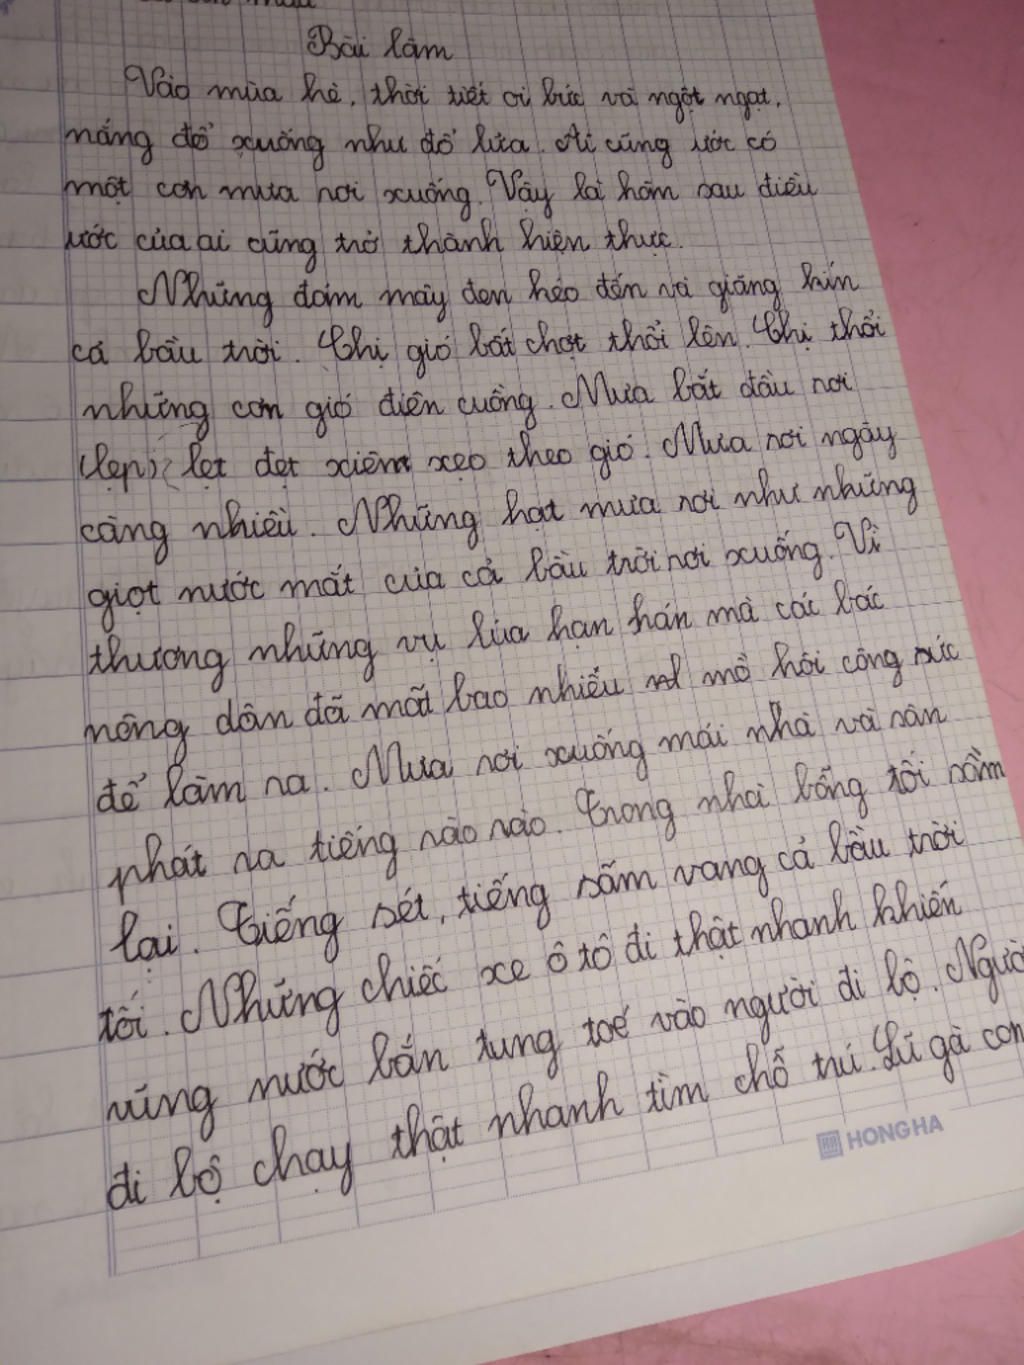 Bài làm
Vào mùa hè, thời tiết oi bức và ngột ngạt,
nắng đổ xuống như đổ lửa. Ai cũng ước có
một cơn mưa rơi xuống. Vậy là hôm sau điều
ước của ai cũng trở thành hiện thực.
Những đám mây đen kéo đến và giăng kín
cả bầu trời. Chị gió bất chợt thổi lên. Chị thổi
những cơn gió điên cuồng. Mưa bắt đầu rơi
(lẹp) lẹt đẹt xiêm xẹo theo gió. Mưa rơi ngày
càng nhiều. Những hạt mưa rơi như những
giọt nước mắt của cả bầu trời rơi xuống. Vì
thương những vụ lúa hạn hán mà các bác
nông dân đã mất bao nhiêu mồ hôi công sức
để làm ra. Mưa rơi xuống mái nhà và sân
phát ra tiếng rào rào. Trong nhà bỗng tối sầm
lại. Tiếng sét, tiếng sấm vang cả bầu trời
tối. Những chiếc xe ô tô đi thật nhanh khiến
vũng nước bắn tung toé vào người đi bộ. Người
đi bộ chạy thật nhanh tìm chỗ trú. Lũ gà con
HONG HA